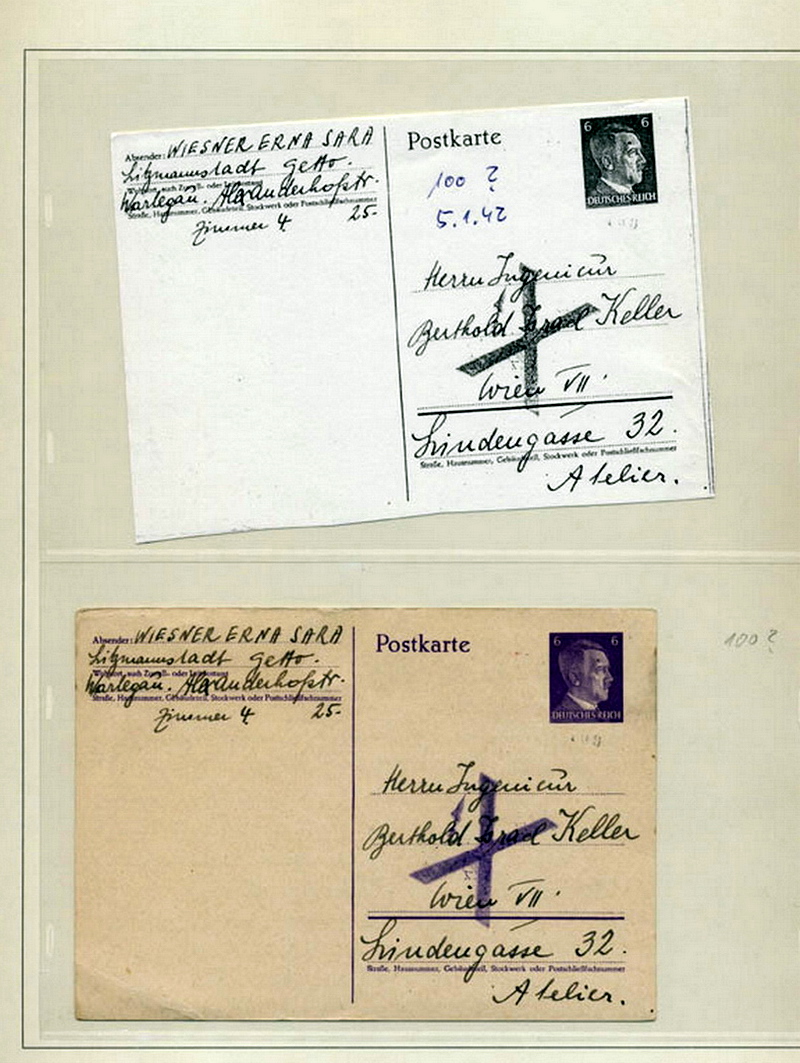 Absender: WIESNER ERNA SARA
Litzmannstadt Getto.
Wohnort, auch Zustell- oder Leitpostamt
Wartegau. Alexanderhofstr.
Straße, Hausnummer, Gebäudeteil, Stockwerk oder Postschließfachnummer
Zimmer 4 25-
Postkarte
6 6
DEUTSCHES REICH
100 ?
5.1.42
Herrn Ingenieur
Berthold Israel Keller
Wien VII.
Lindengasse 32.
Straße, Hausnummer, Gebäudeteil, Stockwerk oder Postschließfachnummer
Atelier.
Absender: WIESNER ERNA SARA
Litzmannstadt Getto.
Wohnort, auch Zustell- oder Leitpostamt
Wartegau. Alexanderhofstr.
Straße, Hausnummer, Gebäudeteil, Stockwerk oder Postschließfachnummer
Zimmer 4 25-
Postkarte
6 6
DEUTSCHES REICH
100 ?
Herrn Ingenieur
Berthold Israel Keller
Wien VII.
Lindengasse 32.
Straße, Hausnummer, Gebäudeteil, Stockwerk oder Postschließfachnummer
Atelier.